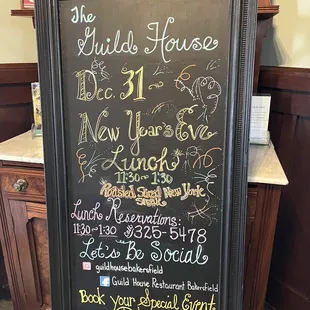 The
Guild House
Dec. 31
New Year's Eve
Lunch
11:30 - 1:30
Roasted Sliced New York
Lunch Reservations:
11:30 - 1:30 325-5478
Let's Be Social
guildhousebakersfield
Guild House Restaurant Bakersfield
Book your Special Event